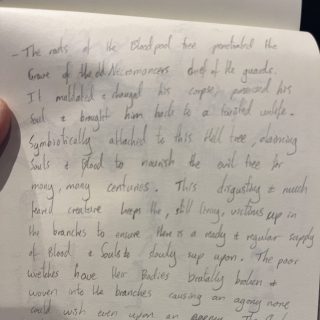 - The roots of the Blood pool tree penetrated the
Grave of the old Necromancers chief of the guards.
It mutated & changed his corpse, possessed his
Soul & brought him back to a twisted unlife.
Symbiotically attached to this Hell tree, draining
Souls & Blood to nourish the evil tree for
many, many centuries. This disgusting & much
feard creature keeps the, still living, victims up in
the branches to ensure there is a ready & regular supply
of Blood & Souls to slowly sup upon. The poor
wretches have their Bodies brutally broken &
woven into the branches causing an agony none
could wish even upon an enemy. The